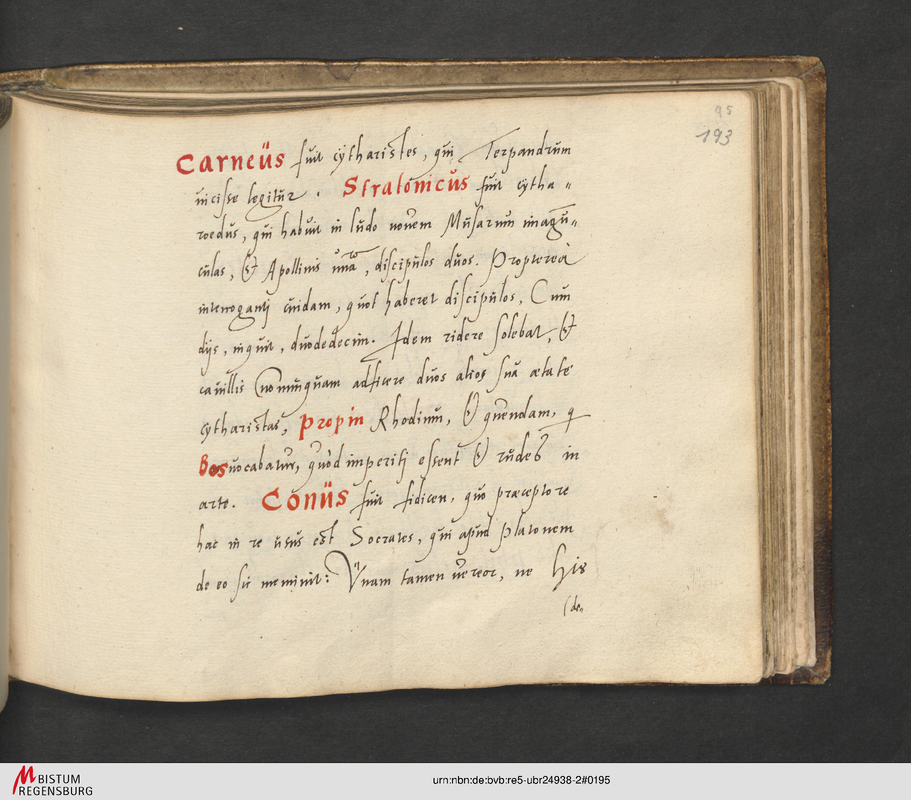 95
193
Carneüs fuit cÿtharistes, qui Terpandrum
uicisse legitur. Stratonicus fuit cytha„
roedus, qui habuit in ludo nouem Musarum imagu„
culas, & Apollinis unã, discipulos duos. Propterea
interroganti cuidam, quot haberet discipulos, Cum
dijs, inquit, duodedecim. Idem ridere solebat, &
cauillis nonnunquam adficere duos alios sua aetate
cytharistas, Propin Rhodium, & quendam, q
Bos uocabatur, quòd imperiti essent & rudes in
arte. Conüs fuit fidicen, quo praeceptore
hac in re usus est Socrates, qui apud Platonem
de eo sic meminit: Vnam tamen uereor, ne His
(de„
BISTUM
REGENSBURG
urn:nbn:de:bvb:re5-ubr24938-2#0195